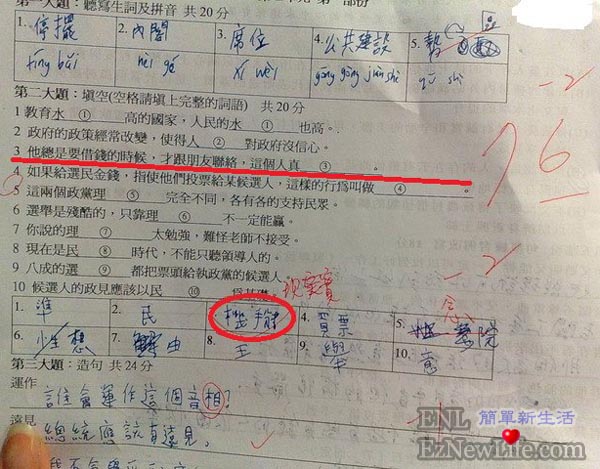 第一大題：聽寫生詞及拼音 共20分
1. 停擺 2. 內閣 3. 席位 4. 公共建設 5.
tíng bǎi nèi gé xí wèi gōng gòng jiàn shè qū shì
-2
第二大題：填空(空格請填上完整的詞語) 共20分
76
1 教育水 ① 高的國家，人民的水 ① 也高。
2 政府的政策經常改變，使得人 ② 對政府沒信心。
3 他總是要借錢的時候，才跟朋友聯絡，這個人真 ③ 。
4 如果給選民金錢，指使他們投票給某候選人，這樣的行為叫做 ④ 。
5 這兩個政黨理 ⑤ 完全不同，各有各的支持民眾。
6 選舉是殘酷的，只靠理 ⑥ 不一定能贏。
7 你說的理 ⑦ 太勉強，難怪老師不接受。
8 現在是民 ⑧ 時代，不能只聽領導人的。
9 八成的選 ⑨ 都把票頭給執政黨的候選人
10 候選人的政見應該以民 ⑩ 為基礎
-2
現實
念
1. 準 2. 民 4. 買票 5.
6. 想 7. 由 8. 主 9. 舉 10. 意
第三大題：造句 共24分
運作
誰會運作這個音相？
遠見
總統應該有遠見。
ENL 簡單新生活
EzNewLife.com